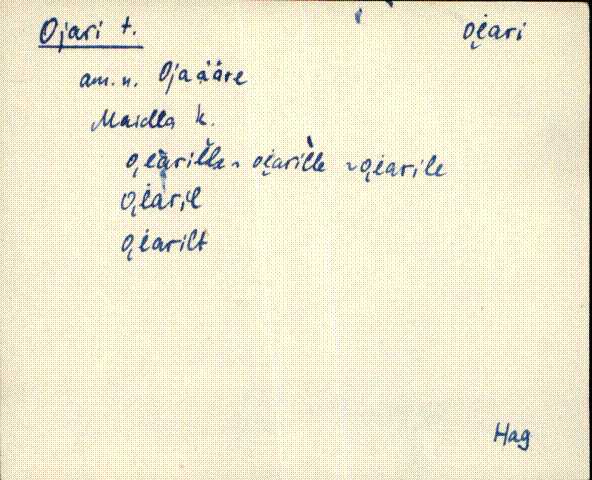 Ojari t. oi̯ari
am. n. Ojaääre
Maidla k.
oi̯arille ~ oi̯arìlle ~ oi̯arile
oi̯aril
oi̯arilt
Hag